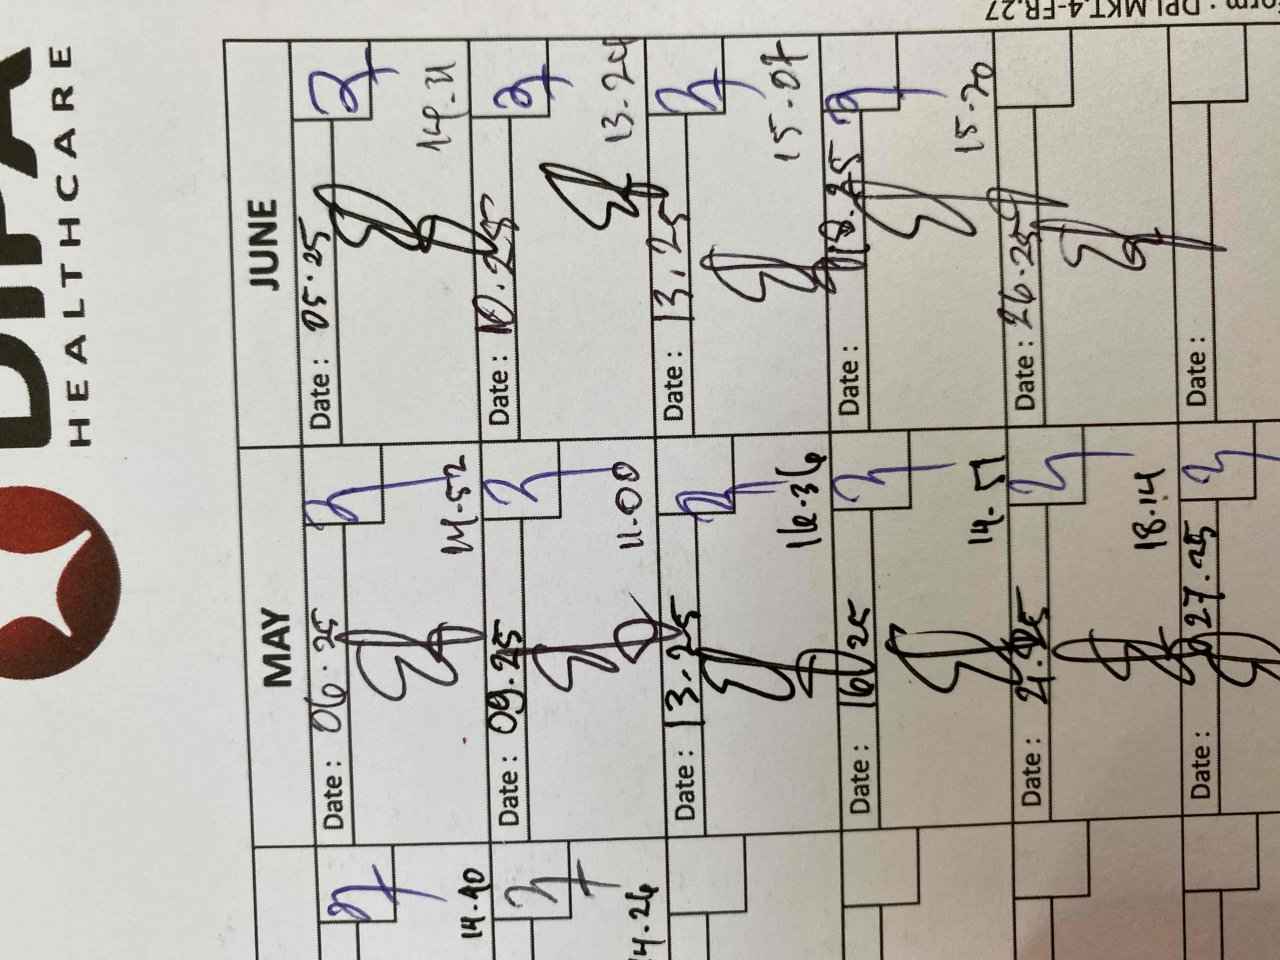 Form : DPI.MKT.4-FR.27
DIPA
HEALTHCARE
MAY
JUNE
14.40
Date : 06.25
14.52
Date : 05.25
14.31
14.24
Date : 09.25
11.00
Date : 10.25
13.24
Date : 13.25
16.36
Date : 13.25
15.07
Date : 16 25
14.51
Date : 18.25
15.20
Date : 21.25
18.14
Date : 26.25
Date : 27.25
Date :